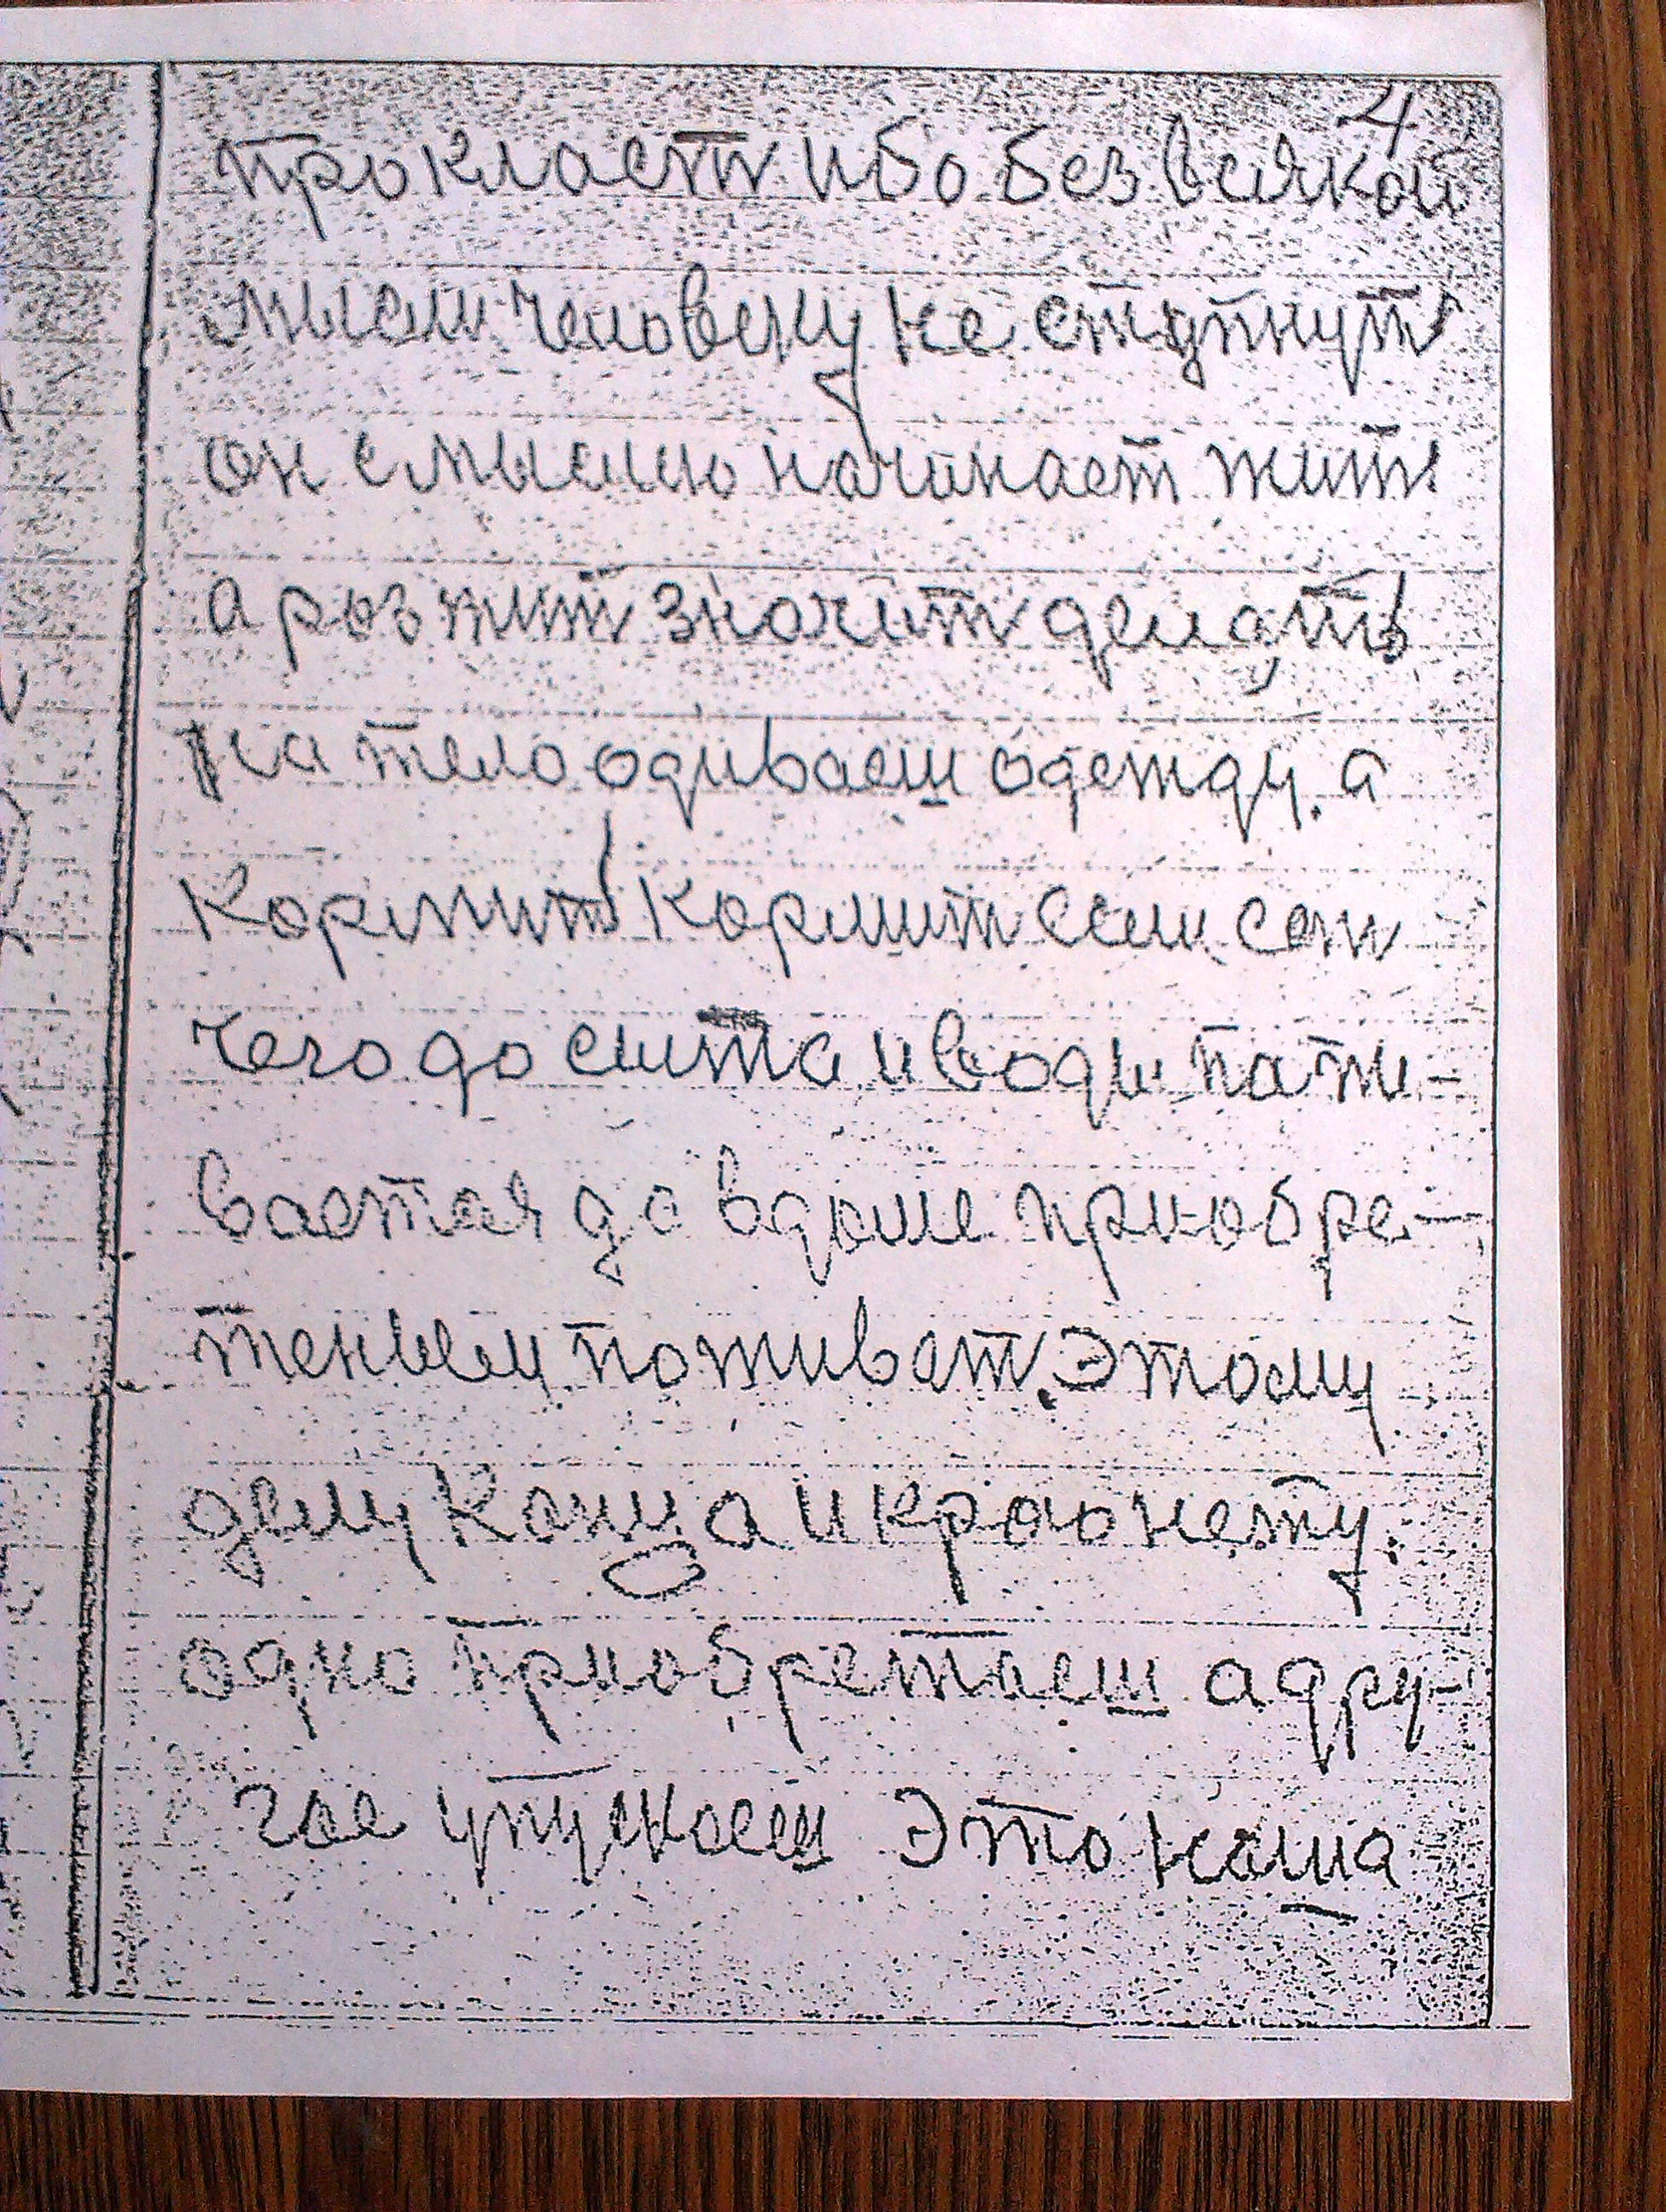 4
прокласт ибо без всякой
мысли человеку не ступнут
он с мыслю начинает жит
а роз жит значит делать
на тело одиваеш одежду. а
кормить кормит если сот
чего до сита и води пажи-
вается до в доме приобре-
теньем поживат. Этому
делу конца и краю нету.
одно приобретаеш а дру-
гое упускаеш Это наша